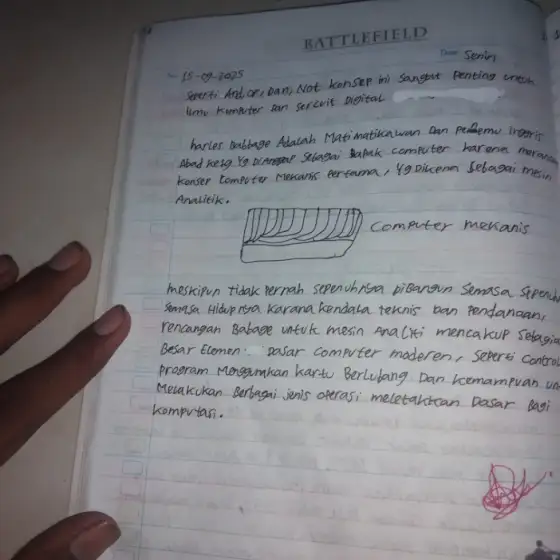 BATTLEFIELD
Date Senin
15-09-2025
Seperti And, or, Dan, Not konsep ini Sangat Penting untuk
Ilmu Kumputer Dan Sercuit Digital
harles Babbage Adalah Matimatikawan Dan Penemu Inggris
Abad ke19 Yg Dianggap Sebagai Bapak computer karena
konsep Computer Mekanis Pertama, Yg Dikena Sebagai mesin
Analitik.
Computer mekanis
meskipun tidak Pernah sepenuhnya DiBangun Semasa
Semasa Hidupnya karana kendala teknis Dan Pendanaan,
rencangan Babage untuk mesin Analiti mencakup Sebagia
Besar Elemen Dasar Computer moderen, Seperti Control
Program Menggunakan kartu Berlubang Dan kemampuan un
Melakukan Berbagai jenis operasi meletakkan Dasar Bagi
komputasi.